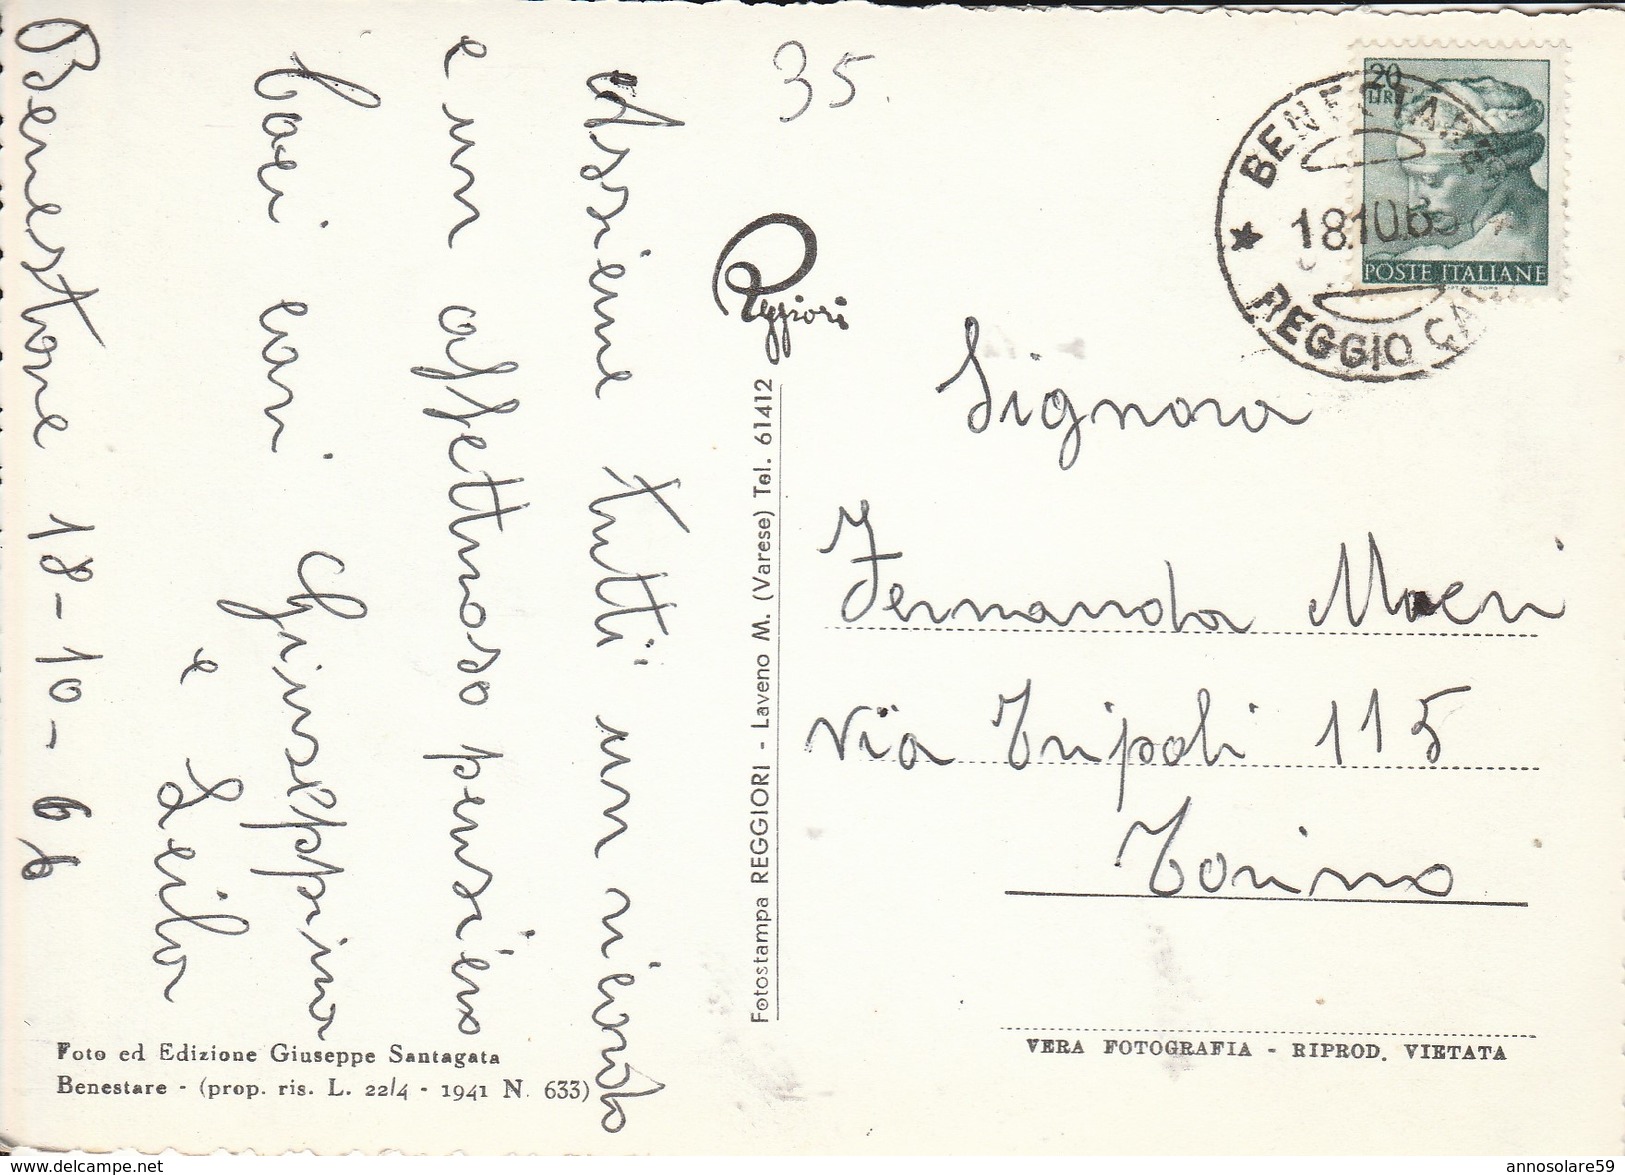 35.
Assieme tutti un ricordo
e un affettuoso pensiero
Baci cari Giuseppina
e Leila
Benestare 18-10-66
Foto ed Edizione Giuseppe Santagata
Benestare - (prop. ris. L. 22/4 - 1941 N. 633)
Reggiori
Fotostampa REGGIORI - Laveno M. (Varese) Tel. 61412
20
LIRE
POSTE ITALIANE
BENESTARE
18.10.66
REGGIO CAL
Signora
Fernanda
Via Tripoli 115
Torino
VERA FOTOGRAFIA - RIPROD. VIETATA
www.delcampe.net
annosolare59